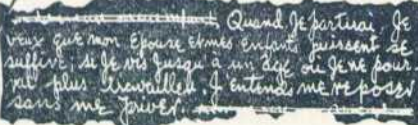 Quand Je partirai, Je
veux que mon Epouse et mes Enfants puissent se
suffire, si Je vis Jusqu'à un âge où Je ne pour-
rai plus travailler, J'entends me reposer
sans me priver.